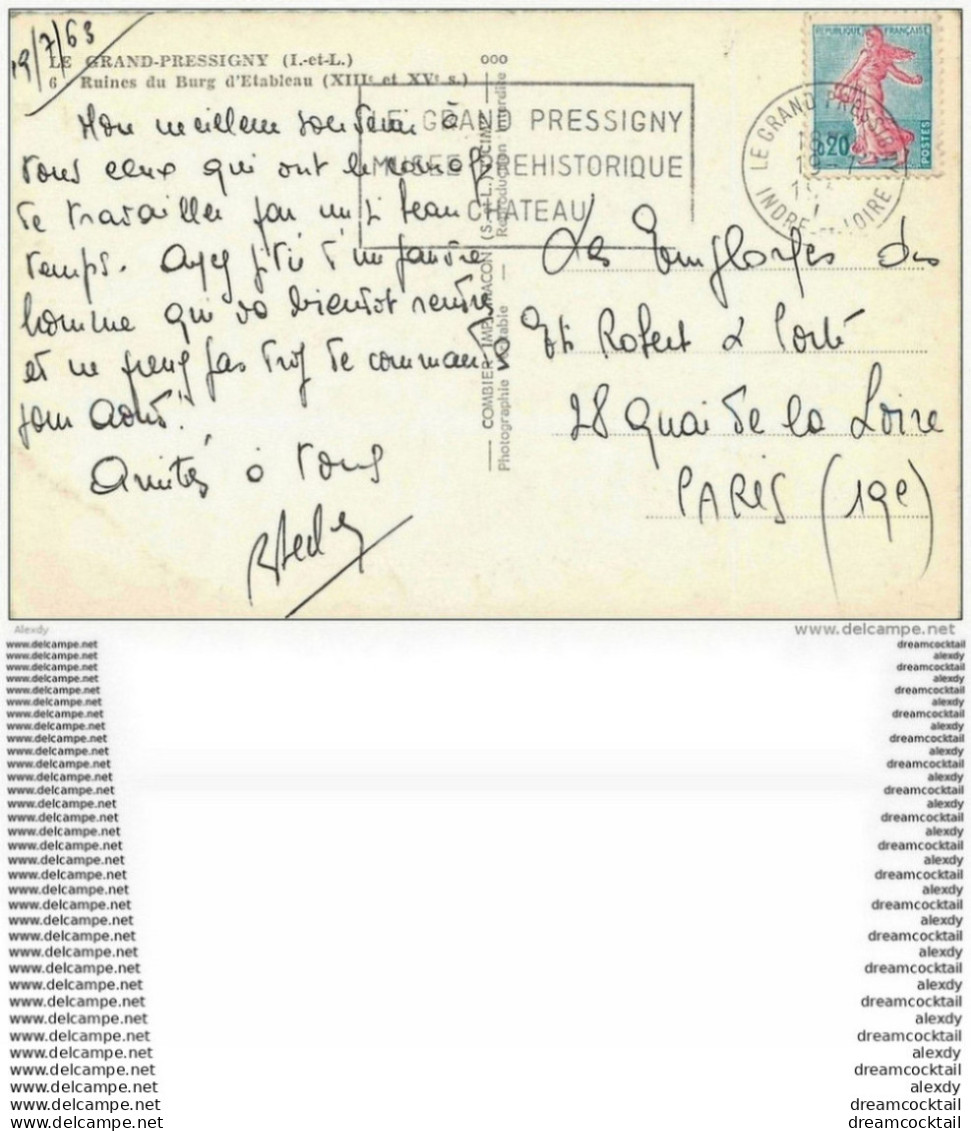 19/7/63
LE GRAND-PRESSIGNY (I.-et-L.)
6 Ruines du Burg d'Etableau (XIIIe et XVe s.)
Mon meilleur souvenir à
tous ceux qui ont le
de travailler par un si beau
temps. Ayez pitié d'un pauvre
homme qui va bientôt rentrer
et ne prenez pas trop de commandes
pour Août.
Amitiés à tous
ooo
COMBIER IMP. MACON (S.-et-L.) "CIM"
Photographie véritable — Reproduction interdite
LE GRAND PRESSIGNY
MUSEE PREHISTORIQUE
CHATEAU
REPUBLIQUE FRANÇAISE
0,20
POSTES
LE GRAND PRESSIGNY
19-7
INDRE-ET-LOIRE
Les Employés des
Ets Robert &
28 Quai de la Loire
PARIS (19e)
Alexdy
www.delcampe.net
www.delcampe.net
www.delcampe.net
www.delcampe.net
www.delcampe.net
www.delcampe.net
www.delcampe.net
www.delcampe.net
www.delcampe.net
www.delcampe.net
www.delcampe.net
www.delcampe.net
www.delcampe.net
www.delcampe.net
www.delcampe.net
www.delcampe.net
www.delcampe.net
www.delcampe.net
www.delcampe.net
www.delcampe.net
www.delcampe.net
www.delcampe.net
www.delcampe.net
www.delcampe.net
www.delcampe.net
www.delcampe.net
www.delcampe.net
www.delcampe.net
www.delcampe.net
www.delcampe.net
www.delcampe.net
www.delcampe.net
www.delcampe.net
www.delcampe.net
www.delcampe.net
dreamcocktail
alexdy
dreamcocktail
alexdy
dreamcocktail
alexdy
dreamcocktail
alexdy
dreamcocktail
alexdy
dreamcocktail
alexdy
dreamcocktail
alexdy
dreamcocktail
alexdy
dreamcocktail
alexdy
dreamcocktail
alexdy
dreamcocktail
alexdy
dreamcocktail
alexdy
dreamcocktail
alexdy
dreamcocktail
alexdy
dreamcocktail
alexdy
dreamcocktail
alexdy
dreamcocktail
alexdy
dreamcocktail
dreamcocktail